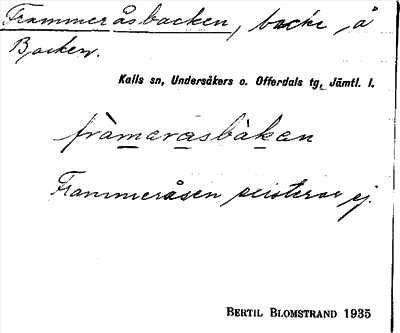 Frammeråsbacken, backe, å
Backen.
Kalls sn, Undersåkers o. Offerdals tg, Jämtl. l.
fràmerasbàken
Frammeråsen existerar ej.
BERTIL BLOMSTRAND 1935